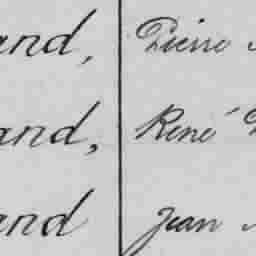 and, Pierre
and, René
and Jean